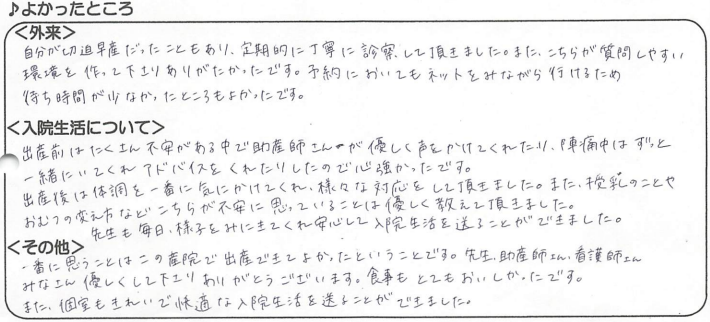 ♪よかったところ
<外来>
自分が切迫早産だったこともあり、定期的に丁寧に診察して頂きました。また、こちらが質問しやすい
環境を作って下さりありがたかったです。予約においてもネットをみながら行けるため
待ち時間が少なかったところもよかったです。
<入院生活について>
出産前はたくさん不安がある中で助産師さんが優しく声をかけてくれたり、陣痛中はずっと
一緒にいてくれアドバイスをくれたりしたので心強かったです。
出産後は体調を一番に気にかけてくれ、様々な対応をして頂きました。また、授乳のことや
おむつの変え方などこちらが不安に思っていることは優しく教えて頂きました。
先生も毎日、様子をみにきてくれ安心して入院生活を送ることができました。
<その他>
一番に思うことはこの産院で出産できてよかったということです。先生、助産師さん、看護師さん
みなさん優しくして下さりありがとうございます。食事もとてもおいしかったです。
また、個室もきれいで快適な入院生活を送ることができました。